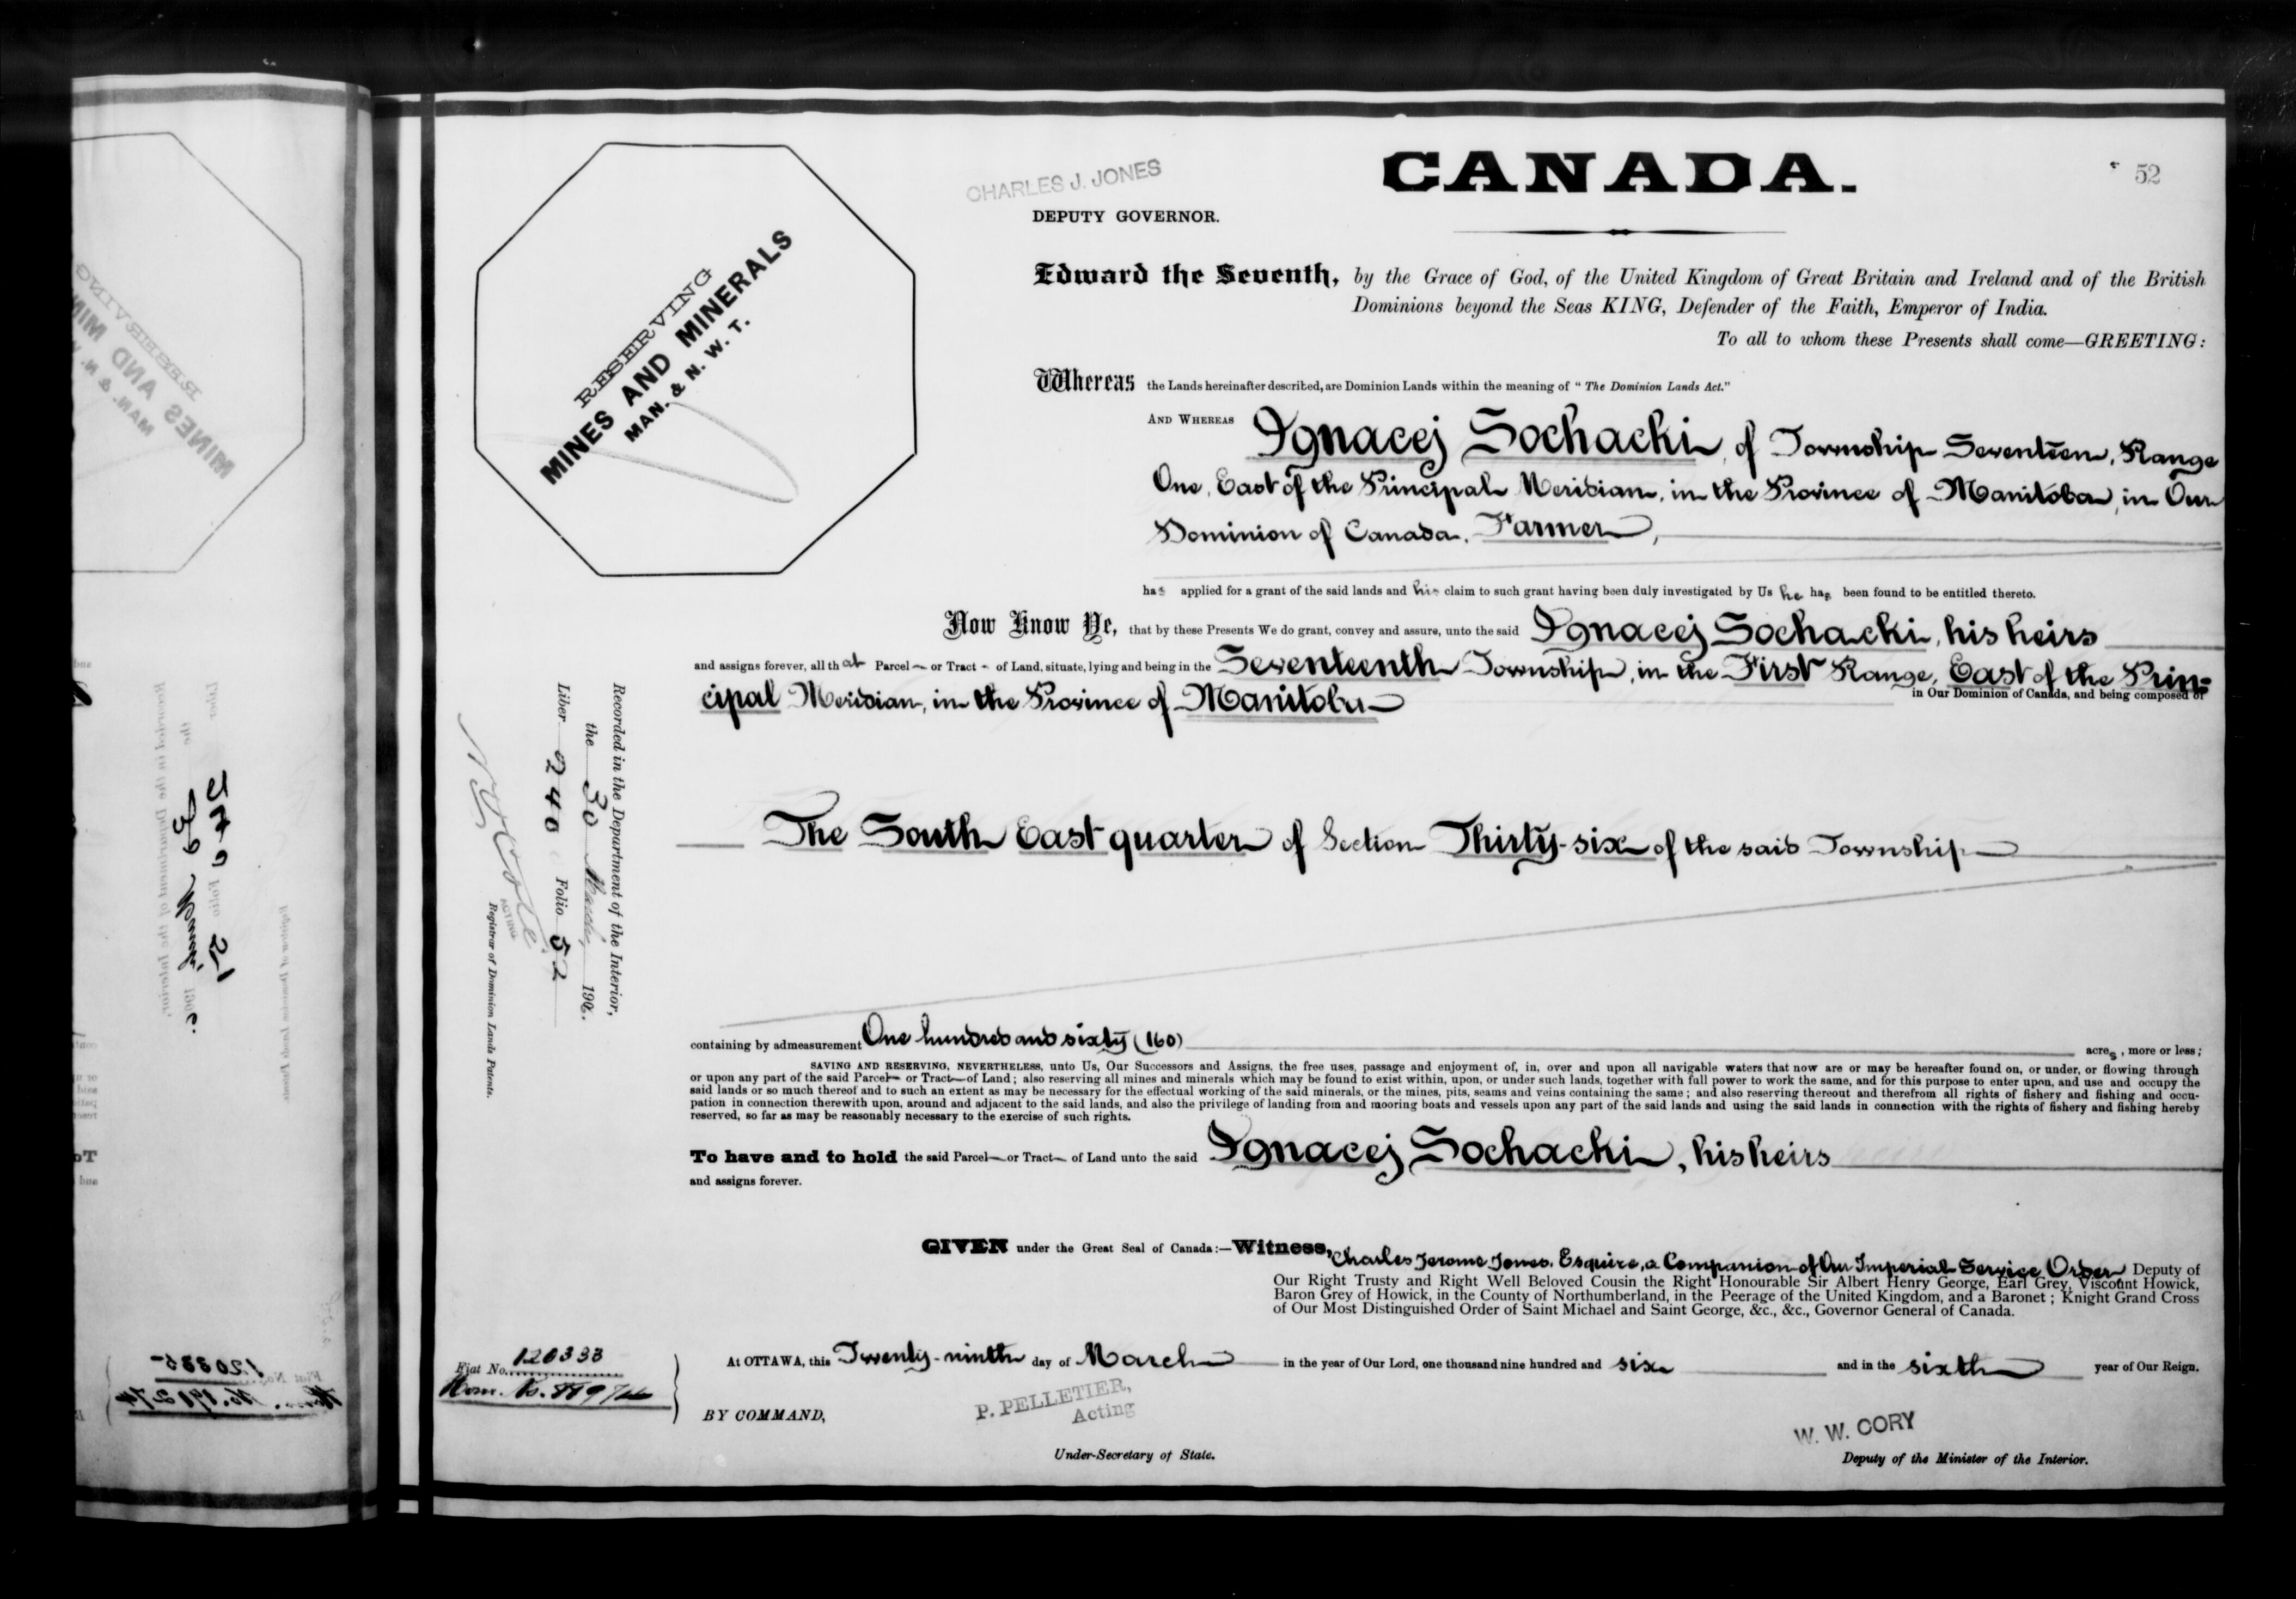 CANADA.
52
CHARLES J. JONES
DEPUTY GOVERNOR.
RESERVING
MINES AND MINERALS
MAN. & N. W. T.
Edward the Seventh, by the Grace of God, of the United Kingdom of Great Britain and Ireland and of the British
Dominions beyond the Seas KING, Defender of the Faith, Emperor of India.
To all to whom these Presents shall come—GREETING:
Whereas the Lands hereinafter described, are Dominion Lands within the meaning of "The Dominion Lands Act."
AND WHEREAS Ignacej Sochacki, of Township Seventeen, Range
One, East of the Principal Meridian, in the Province of Manitoba, in Our
Dominion of Canada, Farmer,
has applied for a grant of the said lands and his claim to such grant having been duly investigated by Us he has been found to be entitled thereto.
Now Know Ye, that by these Presents We do grant, convey and assure, unto the said Ignacej Sochacki, his heirs
and assigns forever, all that Parcel or Tract of Land, situate, lying and being in the Seventeenth Township, in the First Range, East of the Prin-
cipal Meridian, in the Province of Manitoba in Our Dominion of Canada, and being composed of
The South East quarter of Section Thirty-six of the said Township
containing by admeasurement One hundred and sixty (160) acres, more or less;
SAVING AND RESERVING, NEVERTHELESS, unto Us, Our Successors and Assigns, the free uses, passage and enjoyment of, in, over and upon all navigable waters that now are or may be hereafter found on, or under, or flowing through
or upon any part of the said Parcel or Tract of Land; also reserving all mines and minerals which may be found to exist within, upon, or under such lands, together with full power to work the same, and for this purpose to enter upon, and use and occupy the
said lands or so much thereof and to such an extent as may be necessary for the effectual working of the said minerals, or the mines, pits, seams and veins containing the same; and also reserving thereout and therefrom all rights of fishery and fishing and occu-
pation in connection therewith upon, around and adjacent to the said lands, and also the privilege of landing from and mooring boats and vessels upon any part of the said lands and using the said lands in connection with the rights of fishery and fishing hereby
reserved, so far as may be reasonably necessary to the exercise of such rights.
To have and to hold the said Parcel or Tract of Land unto the said Ignacej Sochacki, his heirs
and assigns forever.
GIVEN under the Great Seal of Canada:—Witness, Charles Jerome Jones, Esquire, a Companion of Our Imperial Service Order Deputy of
Our Right Trusty and Right Well Beloved Cousin the Right Honourable Sir Albert Henry George, Earl Grey, Viscount Howick,
Baron Grey of Howick, in the County of Northumberland, in the Peerage of the United Kingdom, and a Baronet; Knight Grand Cross
of Our Most Distinguished Order of Saint Michael and Saint George, &c., &c., Governor General of Canada.
At OTTAWA, this Twenty-ninth day of March in the year of Our Lord, one thousand nine hundred and six and in the sixth year of Our Reign.
Fiat No. 120333
Hom. No.
BY COMMAND,
P. PELLETIER,
Acting
Under-Secretary of State.
W. W. CORY
Deputy of the Minister of the Interior.
Recorded in the Department of the Interior,
the 30 March, 1906.
Liber 240 Folio 52
ACTING
Registrar of Dominion Lands Patents.